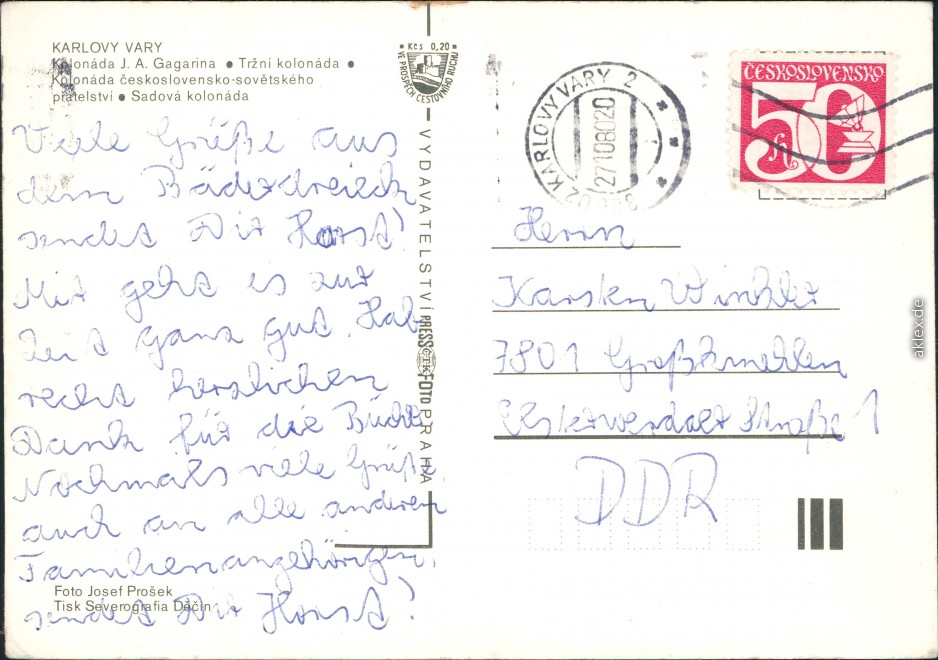 KARLOVY VARY
Kolonáda J. A. Gagarina ● Tržní kolonáda ●
Kolonáda československo-sovětského
přátelství ● Sadová kolonáda
Viele Grüße aus
dem Bäderdreieck
sendet Dir Horst!
Mir geht es zur
Zeit ganz gut. Hab
recht herzlichen
Dank für die
Nochmals viele Grüße
auch an alle anderen
Familienangehörigen,
sendet Dir Horst!
Foto Josef Prošek
Tisk Severografia Děčín
Kčs 0,20
VE PROSPĚCH CESTOVNÍHO RUCHU
VYDAVATELSTVÍ PRESSFOTO PRAHA
ČTK
KARLOVY VARY 2
27.10.80-20
ČESKOSLOVENSKO
50 h
Herrn
Karsten Winkler
7801 Großkmehlen
Elsterwerdaer Straße 1
DDR
aklex.de